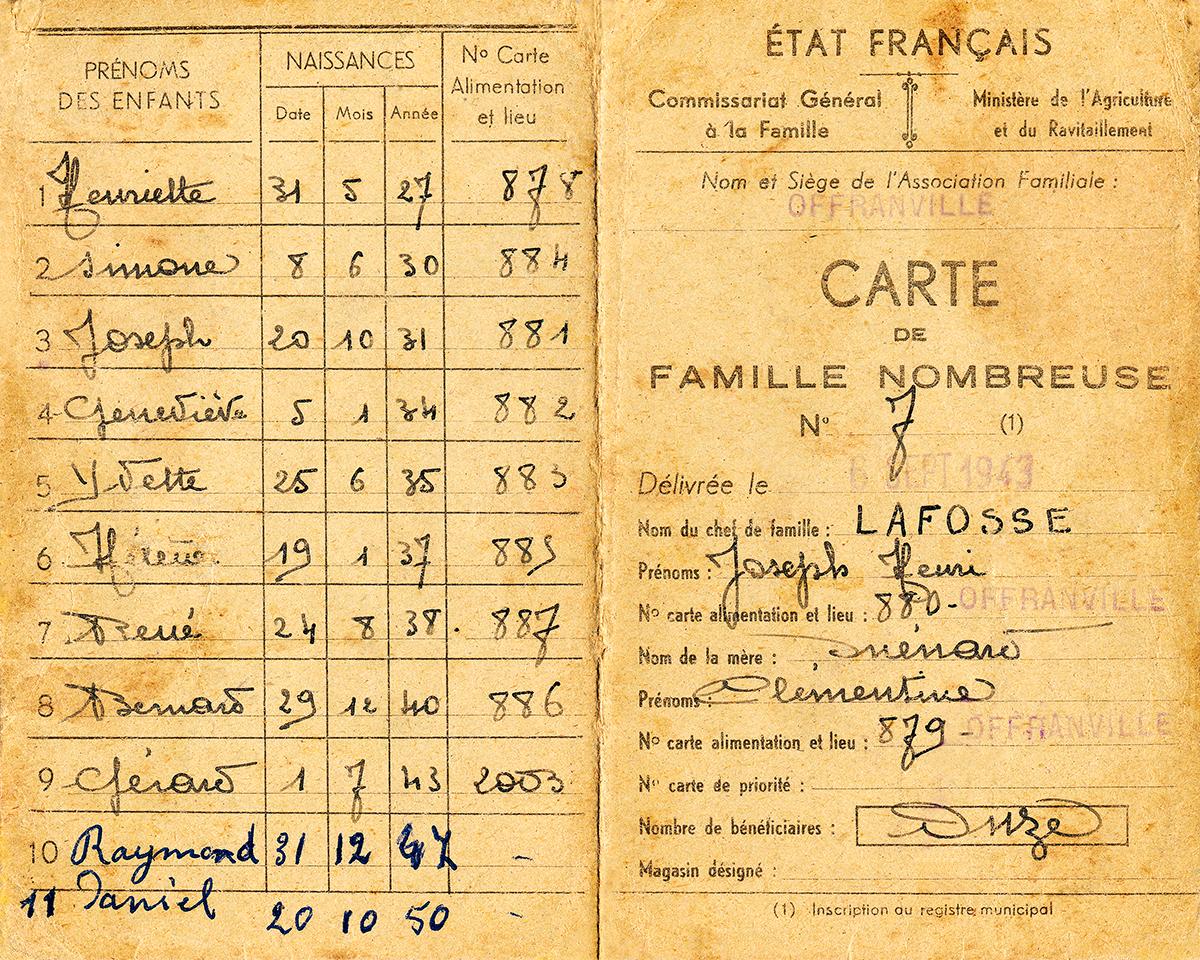 PRÉNOMS DES ENFANTS | NAISSANCES | N° Carte Alimentation et lieu
Date | Mois | Année
1 Henriette 31 5 27 878
2 Simone 8 6 30 884
3 Joseph 20 10 31 881
4 Geneviève 5 1 34 882
5 Yvette 25 6 35 883
6 19 1 37 885
7 René 24 8 38. 887
8 Bernard 29 12 40 886
9 Gérard 1 7 43 2003
10 Raymond 31 12 47 -
11 Daniel 20 10 50 -
ÉTAT FRANÇAIS
Commissariat Général à la Famille
Ministère de l'Agriculture et du Ravitaillement
Nom et Siège de l'Association Familiale :
OFFRANVILLE
CARTE
DE
FAMILLE NOMBREUSE
N° 7 (1)
Délivrée le 6 SEPT 1943
Nom du chef de famille : LAFOSSE
Prénoms : Joseph Henri
N° carte alimentation et lieu : 880- OFFRANVILLE
Nom de la mère :
Prénoms : Clémentine
N° carte alimentation et lieu : 879- OFFRANVILLE
N° carte de priorité :
Nombre de bénéficiaires : Onze
Magasin désigné :
(1) Inscription au registre municipal